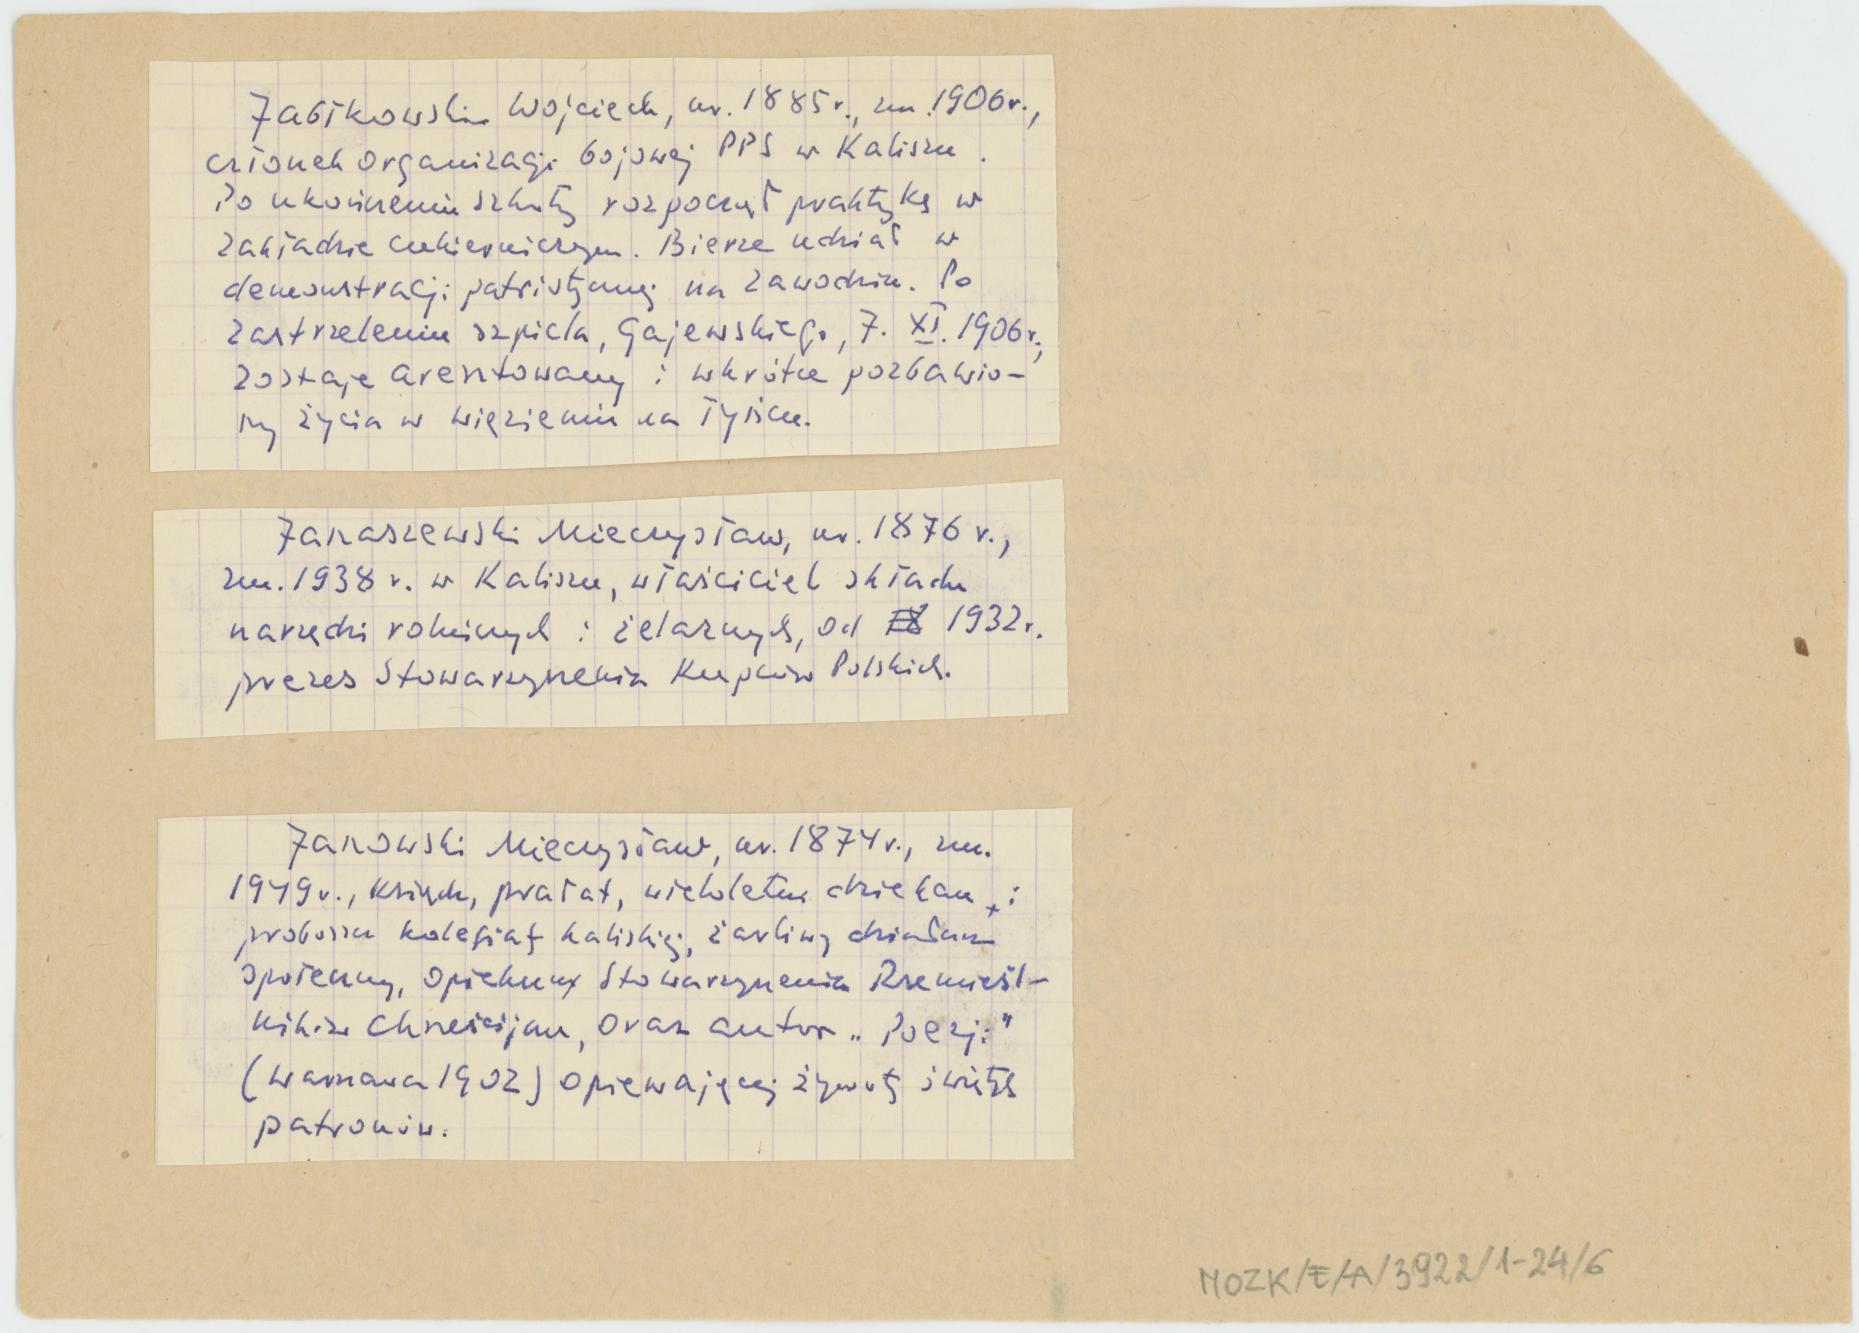 Jabłkowski Wojciech, ur. 1885 r., zm. 1906 r.,
członek organizacji bojowej PPS w Kaliszu.
Po ukończeniu szkoły rozpoczął praktykę w
zakładzie cukierniczym. Bierze udział w
demonstracji patriotycznej na Zawodziu. Po
zastrzeleniu szpicla, Gajewskiego, 7. XI. 1906 r.,
zostaje aresztowany i wkrótce pozbawio-
ny życia w więzieniu na Tyńcu.
Janaszewski Mieczysław, ur. 1876 r.,
zm. 1938 r. w Kaliszu, właściciel składu
narzędzi rolniczych i żelaznych, od 1932 r.
prezes Stowarzyszenia Kupców Polskich.
Janowski Mieczysław, ur. 1874 r., zm.
1949 r., ksiądz, prałat, wieloletni dziekan i
proboszcz kolegiaty kaliskiej, żarliwy działacz
społeczny, opiekun Stowarzyszenia Rzemieśl-
ników Chrześcijan, oraz autor „Poezji"
(Warszawa 1902) opiewającej żywoty świętych
patronów.
MOZK/E/A/3922/1-24/6